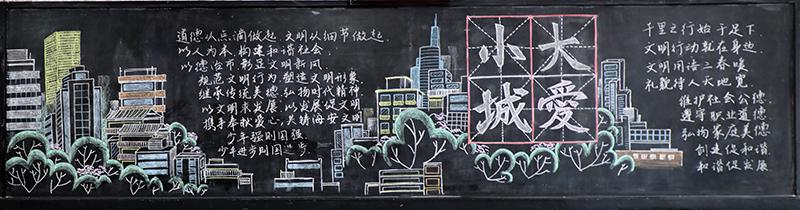 道德从点滴做起 文明从细节做起
以人为本 构建和谐社会
以德治市 彰显文明新风
规范文明行为 塑造文明形象
继承传统美德 弘扬时代精神
以文明求发展 以发展促文明
携手奉献爱心 共铸海安文明
少年强则国强
少年进步则国进步
大愛
小城
千里之行始于足下
文明行动就在身边
文明用语三春暖
礼貌待人天地宽
维护社会公德
遵守职业道德
弘扬家庭美德
创建促和谐
和谐促发展